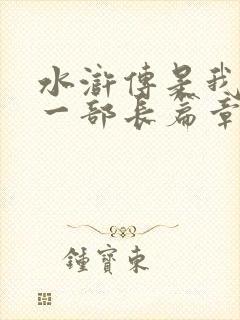 水滸傳是我
一部長篇章
鍾寶東